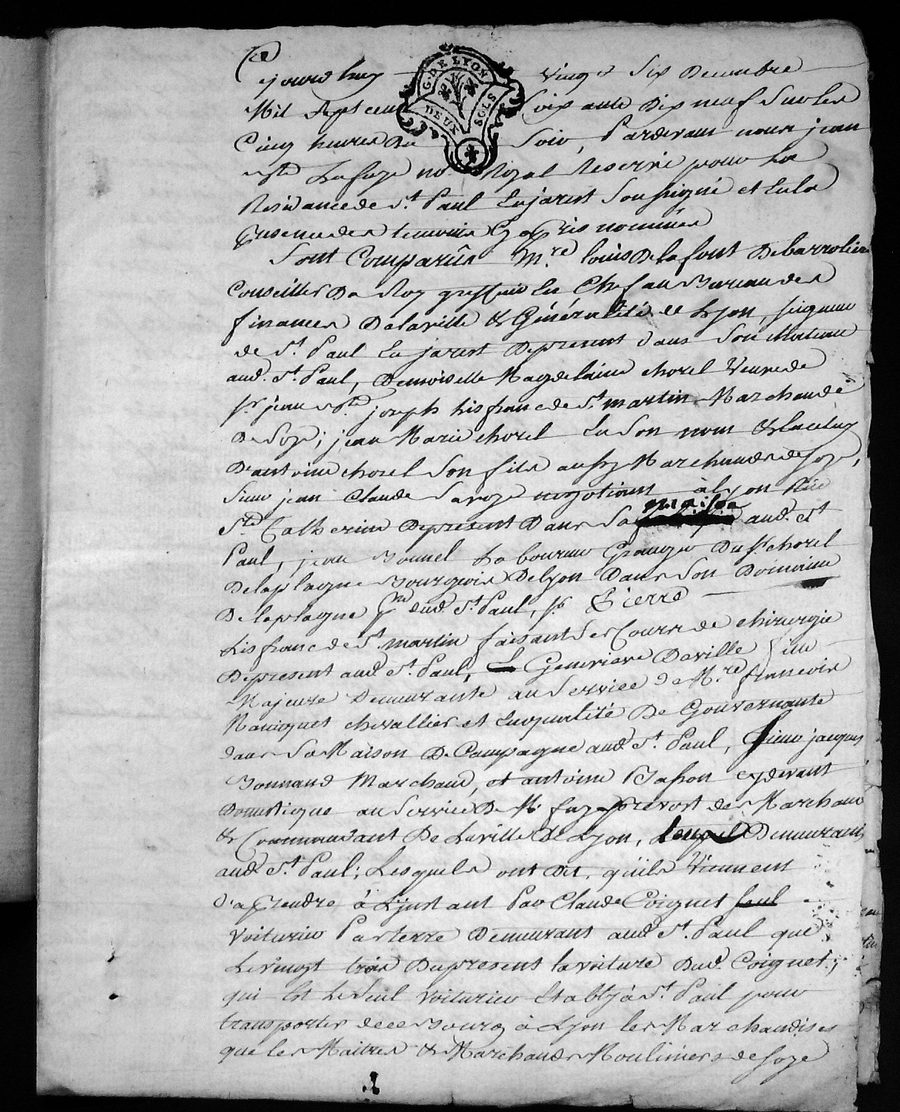 Ce
jourd'huy vingt six Decembre
Mil sept cent soixante Dix neuf sur les
G. DE LYON
DEUX SOLS
Cinq heures Du soir, Pardevant nous jean
Bte Lafaye nore Royal Reservé pour La
Residance de St. Paul En jarest soussigné et En la
presence des temoins cy apris nommés
Sont Comparûs Mre. louis De la font De barrolière
Conseiller Du Roy greffier En Chef au Bureau des
finances De la ville & Généralité de Lyon, seigneur
de St. Paul En jarest De present dans son chateau
aud. St. Paul, Demoiselle Magdelaine chorel Veuve de
sr. jean Bte joseph Lisfranc de St. martin Marchande
De Soye; jean Marie chorel En son nom & En celuy
D'antoine chorel son fils aussy Marchands de soye,
sieur jean Claude Savoye negotiant à Lyon Rüe
Ste. Catherine De present Dans sa maison aud. St
Paul, jean Bonnel Laboureur Granger Du sr. chorel
De la plagne Bourgeois De Lyon Dans son Domaine
De la plagne psse dud. St. Paul, sr. Pierre
Lisfranc de St. martin faisant ses Cours de chirurgie
De present aud. St. Paul, Genevieve Deville fille
Majeure Demeurante au Service de Mre. francois
chevallier et En qualité De Gouvernante
dans Sa Maison De Campagne aud. St. Paul, sieur jacques
Bonnand Marchand, et antoine cy devant
Domestique au Service De Mr. fay Prevost des Marchands
& Commandant De La ville De Lyon, Demeurant
aud. St. Paul; Lesquels ont Dit, qu'ils Viennent
D'apprendre à L'jnstant Par Claude Coignet seul
Voiturier Par terre Demeurant aud. St. Paul que
Le vingt trois Du present la voiture Dud. Coignet,
qui Est Le Seul Voiturier Etably à St. Paul pour
transporter de ce Bourg à Lyon les Marchandises
que les Maitres & Marchands Mouliniers de soye